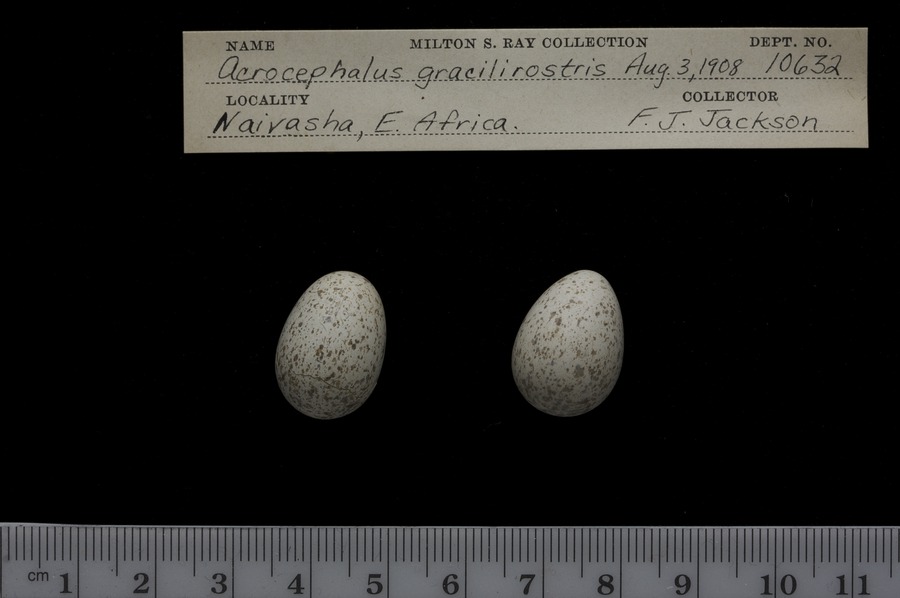 NAME MILTON S. RAY COLLECTION DEPT. NO.
Acrocephalus gracilirostris Aug. 3, 1908 10632
LOCALITY COLLECTOR
Naivasha, E. Africa. F. J. Jackson
cm 1 2 3 4 5 6 7 8 9 10 11